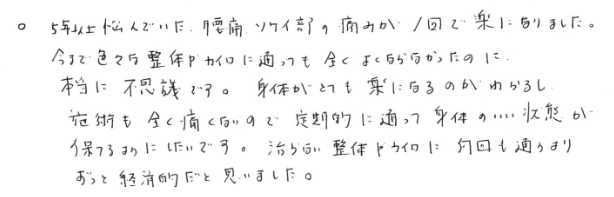 ○ 5年以上悩んでいた、腰痛 ソケイ部の痛みが 1回で楽になりました。
今まで色々な整体やカイロに通っても全くよくならなかったのに
本当に不思議です。 身体がとても楽になるのがわかるし
施術も全く痛くないので 定期的に通って身体のいい状態が
保てるようにしたいです。 治らない整体やカイロに何回も通うより
ずっと経済的だと思いました。